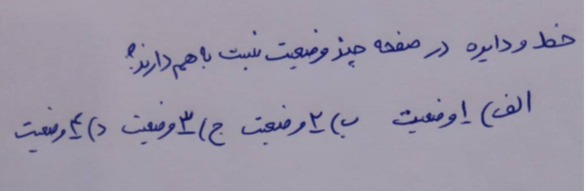 خط و دایره در صفحه چند وضعیت نسبت باهم دارند؟
الف) ۱ وضعیت ب) ۲ وضعیت ج) ۳ وضعیت د) ۴ وضعیت